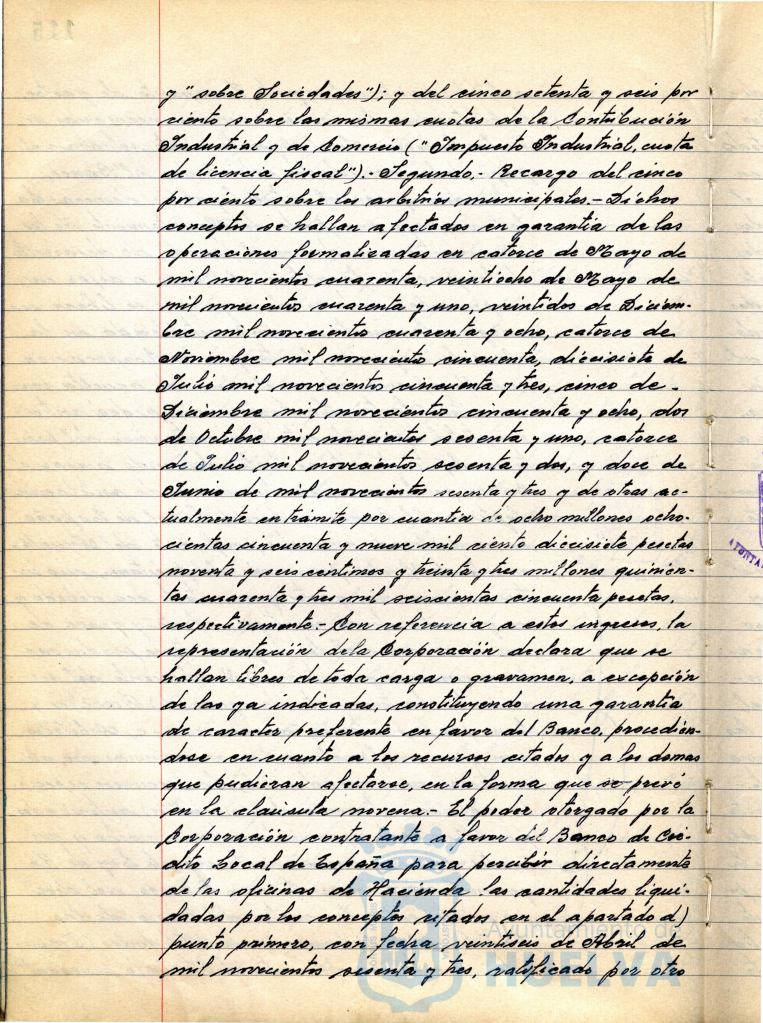 y "sobre Sociedades"); y del cinco setenta y seis por
ciento sobre las mismas cuotas de la Contribución
Industrial y de Comercio ("Impuesto Industrial, cuota
de licencia fiscal").- Segundo.- Recargo del cinco
por ciento sobre los arbitrios municipales.- Dichos
conceptos se hallan afectados en garantia de las
operaciones formalizadas en catorce de Mayo de
mil novecientos cuarenta, veintiocho de Mayo de
mil novecientos cuarenta y uno, veintidos de Diciem-
bre mil novecientos cuarenta y ocho, catorce de
Noviembre mil novecientos cincuenta, diecisiete de
Julio mil novecientos cincuenta y tres, cinco de
Diciembre mil novecientos cincuenta y ocho, dos
de Octubre mil novecientos sesenta y uno, catorce
de Julio mil novecientos sesenta y dos, y doce de
Junio de mil novecientos sesenta y tres y de otras ac-
tualmente en trámite por cuantia de ocho millones ocho-
cientas cincuenta y nueve mil ciento diecisiete pesetas
noventa y seis centimos y treinta y tres millones quinien-
tas cuarenta y tres mil seiscientas cincuenta pesetas,
respectivamente.- Con referencia a estos ingresos, la
representación de la Corporación declara que se
hallan libres de toda carga o gravamen, a excepción
de las ya indicadas, constituyendo una garantia
de caracter preferente en favor del Banco, procedién-
dose en cuanto a los recursos citados y a los demas
que pudieran afectarse, en la forma que se prevé
en la clausula novena.- El poder otorgado por la
Corporación contratante a favor del Banco de Cré-
dito Local de España para percibir directamente
de las oficinas de Hacienda las cantidades liqui-
dadas por los conceptos citados en el apartado d)
punto primero, con fecha veintiseis de Abril de
mil novecientos sesenta y tres, ratificado por otro
Ayuntamiento de
HUELVA